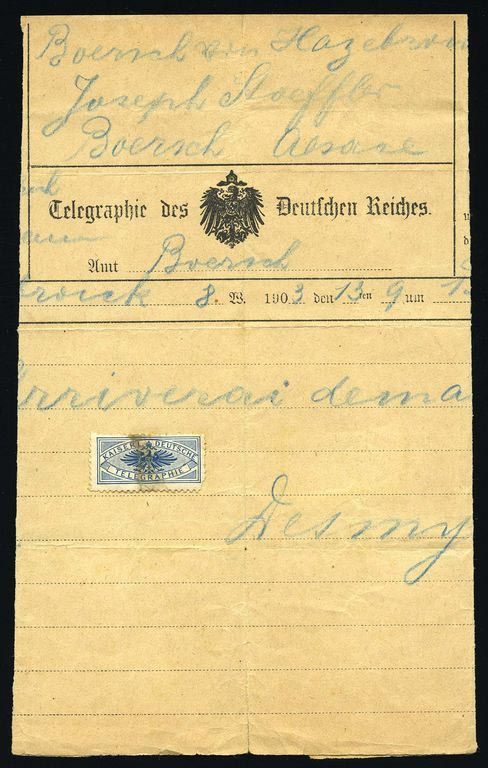 Boersch von Hazebrou
Joseph Stoeffler
Boersch Alsace
Telegraphie des Deutschen Reiches.
Amt Boersch
brouck 8. W. 1903 den 13ten 9 um
Arriverai dema
KAISERL. DEUTSCHE
TELEGRAPHIE
Desmy